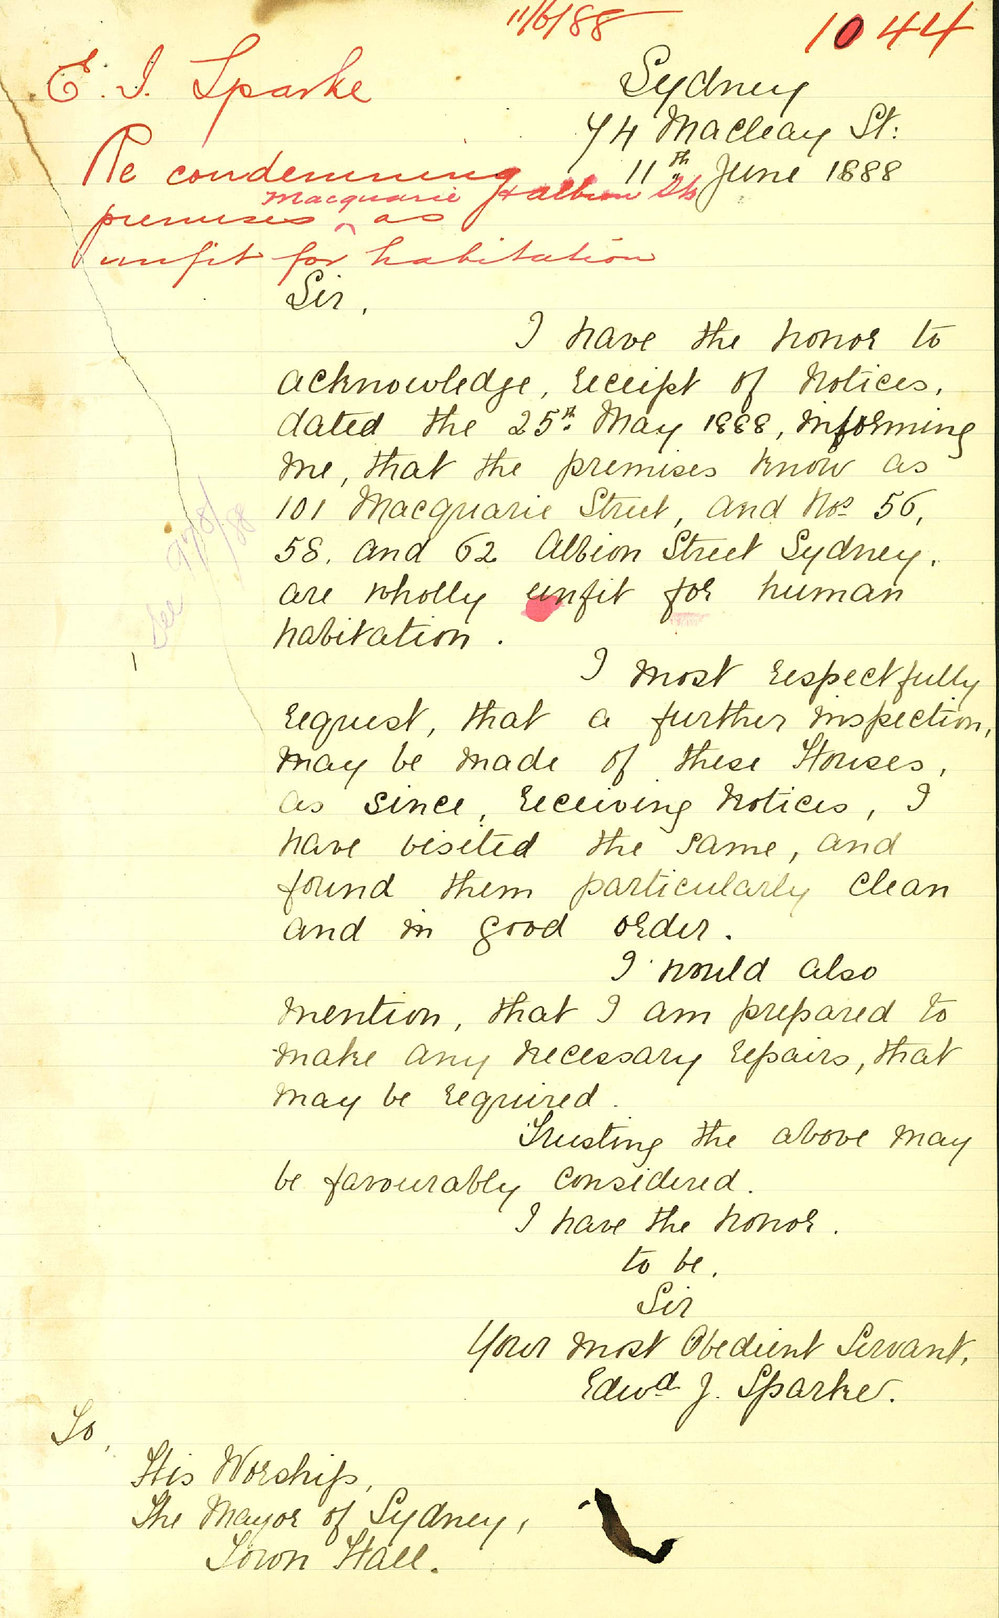 11/6/88
1044
E. J. Sparke
Re condemning
Macquarie & Albion Sts
premises as
unfit for habitation
Sydney
74 Macleay St:
11th June 1888
Sir,
I have the honor to
acknowledge, receipt of Notices,
dated the 25th May 1888, informing
me, that the premises know as
101 Macquarie Street, and Nos 56,
58, and 62 Albion Street Sydney,
are wholly unfit for human
habitation.
See 978/88
I most respectfully
request, that a further inspection,
may be made of these Houses,
as since, receiving Notices, I
have visited the same, and
found them particularly clean
and in good order.
I would also
mention, that I am prepared to
make any necessary repairs, that
may be required.
Trusting the above may
be favourably considered.
I have the honor.
to be,
Sir
Your most Obedient Servant,
Edwd J. Sparke.
To,
His Worship,
The Mayor of Sydney,
Town Hall.